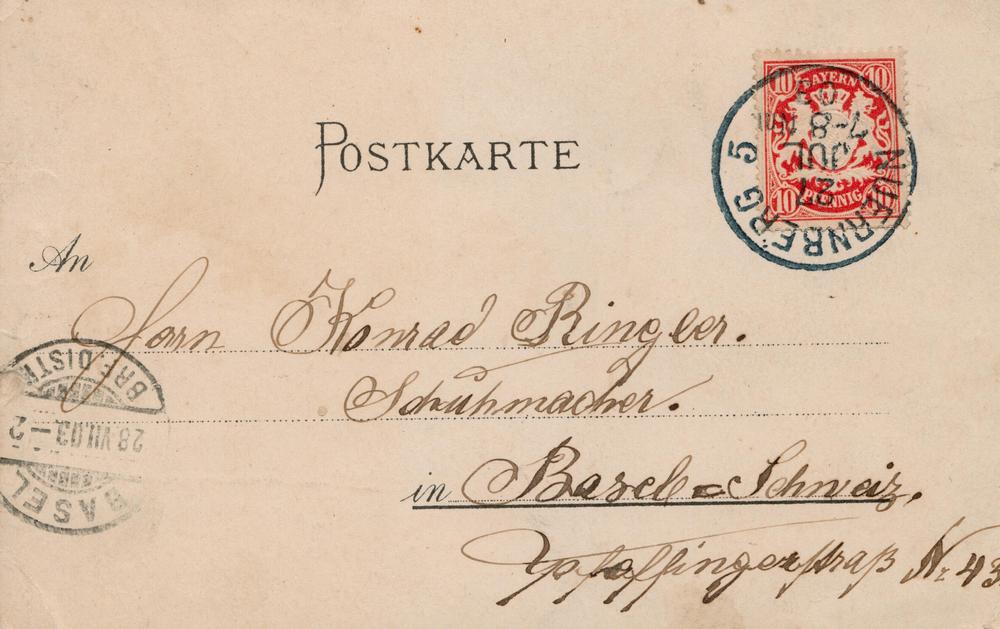 10 BAYERN 10
10 PFENNIG 10
NUERNBERG 5
27
JUL
7-8
03
POSTKARTE
An
Herrn Konrad Ringler.
Schuhmacher.
in Basel=Schweiz.
Pfeffingerstraß Nr 43
BRF. DISTR
28.VII.03.–2
BASEL